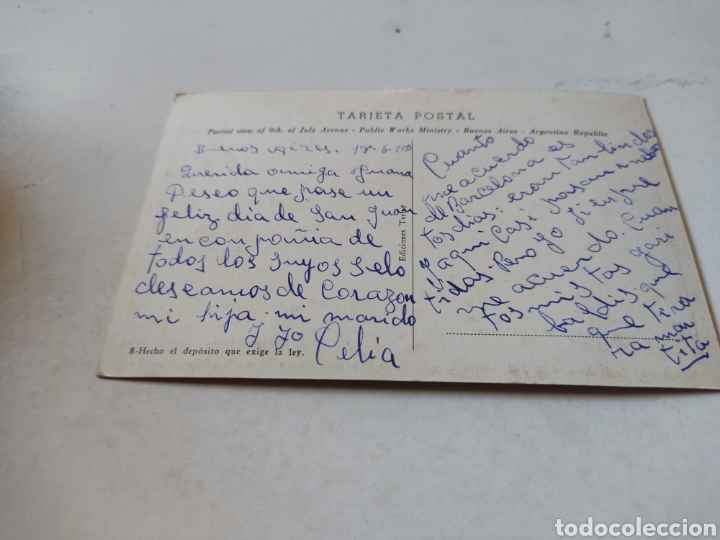 TARJETA POSTAL
Parcial view of 9th. of July Avenue - Public Works Ministry - Buenos Aires - Argentine Republic
Buenos Aires.
Querida amiga Juana
Deseo que pase un
feliz dia de San Juan
en conpañia de
todos los suyos selo
deseamos de Corazon
mi hija. mi marido
y yo
Celia
Ediciones
8-Hecho el depósito que exige la ley.
Cuanto
me acuerdo
de Barcelona es
tos dias. eran tan lindos
y aqui Casi pasan
tidas. Pero yo siempre
me acuerdo. Cuan
tos mistos gari
baldis que
que tira
ra
todocoleccion